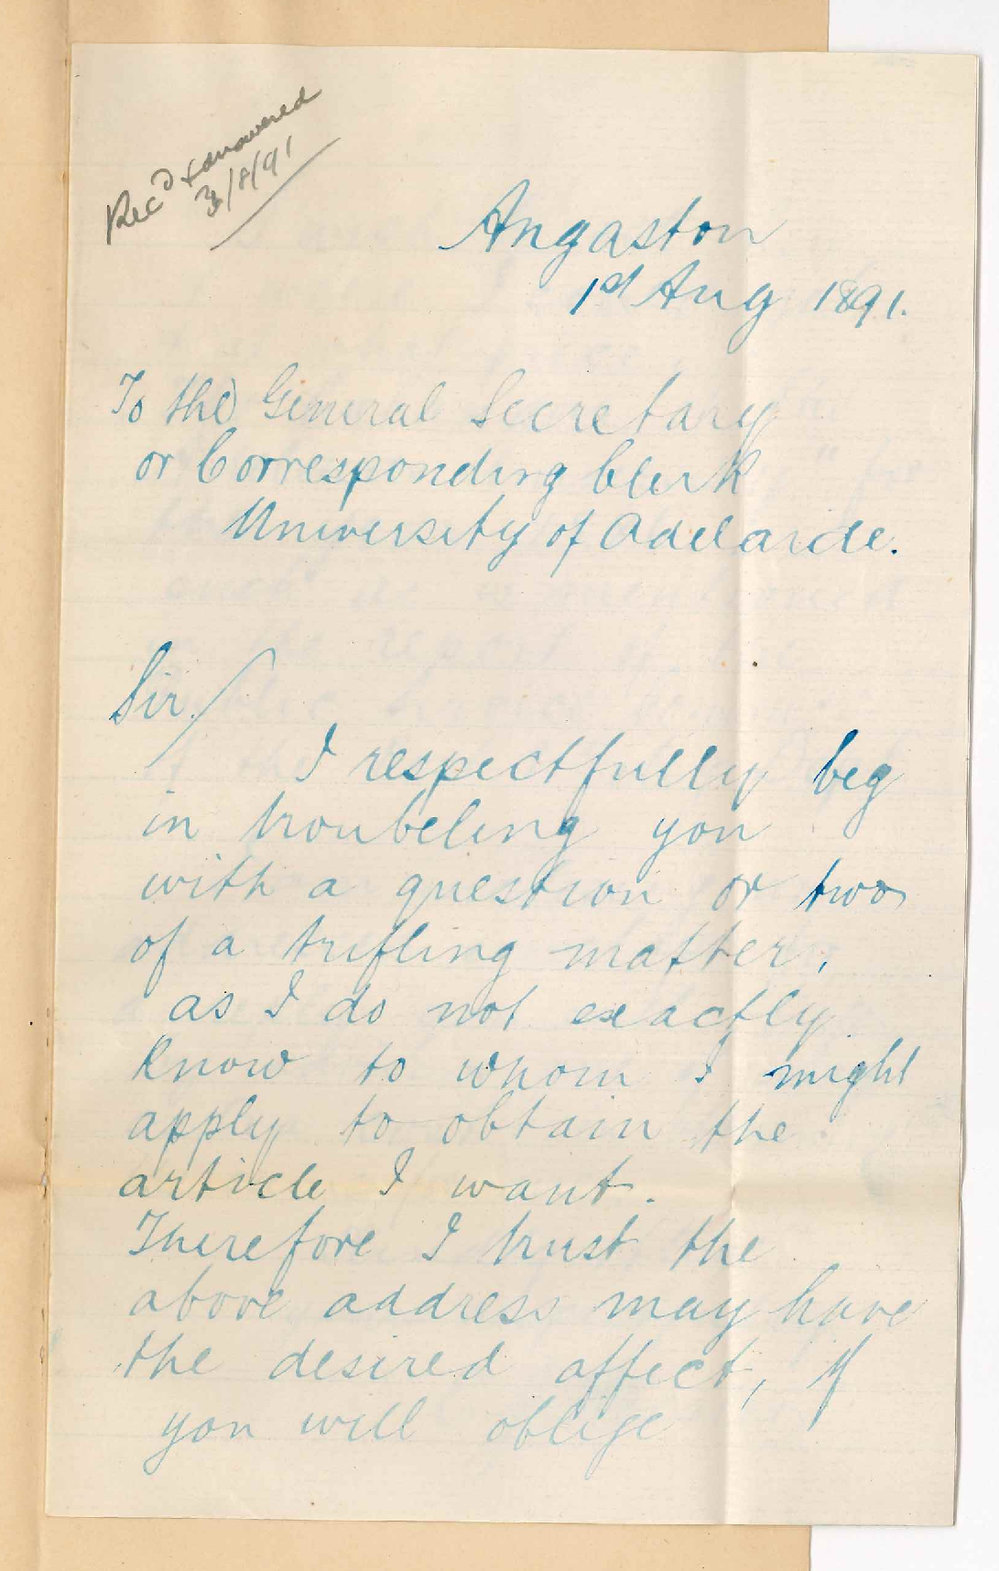 Rec'd & answered
3/8/91
Angaston
1st Aug 1891.
To the General Secretary
or Corresponding Clerk
University of Adelaide.
Sir/
I respectfully beg
in troubeling you
with a question or two
of a trifling matter,
as I do not exactly
know to whom I might
apply to obtain the
article I want.
Therefore I trust the
above address may have
the desired affect, if
you will oblige